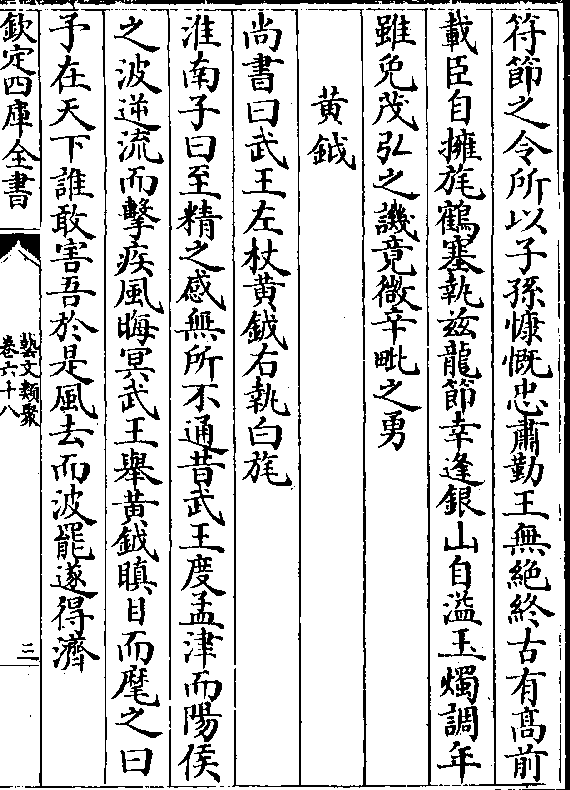 符節之令所以子孫慷慨忠肅勤王無絶終古有髙前
載臣自擁旄鶴塞執兹龍節幸逢銀山自溢玉燭調年
雖免茂弘之譏竟微辛毗之勇
黄鉞
尚書曰武王左杖黄鉞右執白旄
淮南子曰至精之感無所不通昔武王度孟津而陽侯
之波逆流而擊疾風晦冥武王舉黄鉞瞋目而麾之曰
予在天下誰敢害吾於是風去而波罷遂得濟
欽定四庫全書
藝文類聚
卷六十八
三